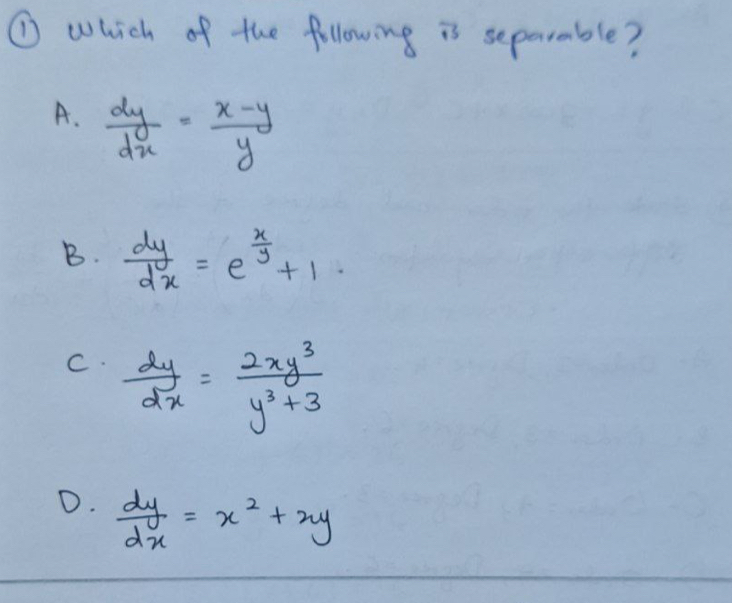 ① Which of the following is separable?
A. dy/dx = (x-y)/y
B. dy/dx = e^(x/y) + 1.
C. dy/dx = 2xy³/(y³+3)
D. dy/dx = x² + xy